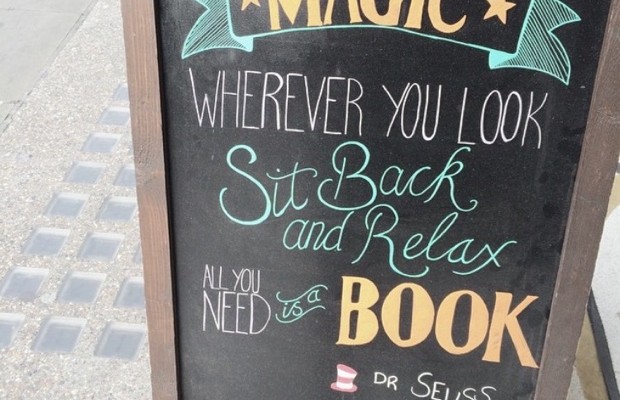 MAGIC
WHEREVER YOU LOOK
Sit Back
and Relax
ALL YOU
NEED is a BOOK
DR SEUSS